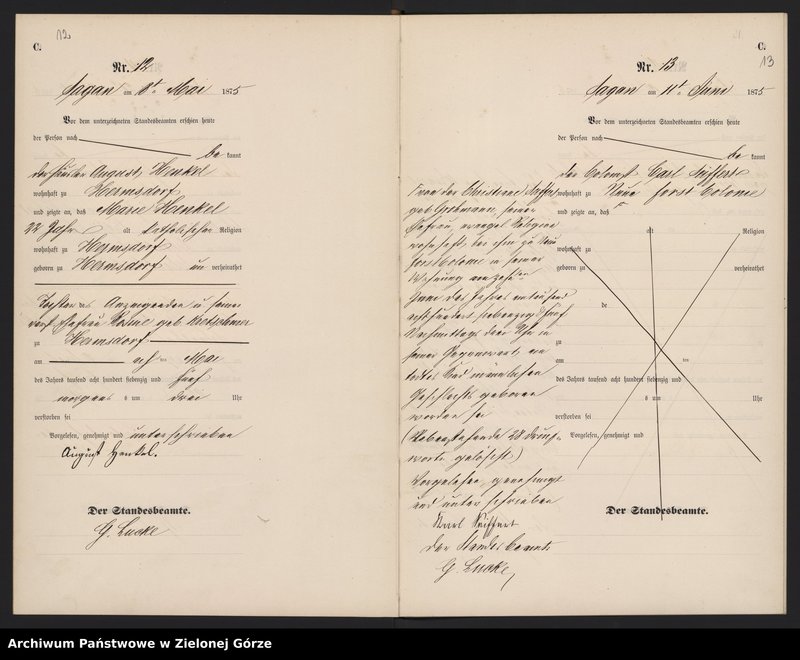 12
C.
Nr. 12
Sagan am 8t Mai 1875
Vor dem unterzeichneten Standesbeamten erschien heute
der Person nach
be kannt
der Häusler August Henkel
wohnhaft zu Hermsdorf
und zeigte an, daß Marie Henkel
22 Jahr alt katholischer Religion
wohnhaft zu Hermsdorf
geboren zu Hermsdorf un verheirathet
Tochter des Anzeigenden u seiner
Ehefrau geb. Kretschmer
zu Hermsdorf
am ten Mai
des Jahres tausend acht hundert siebenzig und fünf
morgens um drei Uhr
verstorben sei
Vorgelesen, genehmigt und unterschrieben
August Henkel.
Der Standesbeamte.
G. Lucke
C.
13
Nr. 13
Sagan am 11t Juni 1875
Vor dem unterzeichneten Standesbeamten erschien heute
der Person nach
be kannt
der Colonist Carl Seiffert
wohnhaft zu Neue forst Colonie
und zeigte an, daß
alt Religion
wohnhaft zu
geboren zu verheirathet
de
zu
am ten
des Jahres tausend acht hundert siebenzig und
um Uhr
verstorben sei
Vorgelesen, genehmigt und
Der Standesbeamte.
von der Christiane Seiffert
geb. seiner
Ehefrau, evangel. Religion
wohnhaft bei ihm zu Neu
forst Colonie in seiner
Wohnung am
Juni des Jahres eintausend
achthundert siebenzig fünf
Nachmittags drei Uhr in
seiner Gegenwart ein
todtes Kind männlichen
Geschlechts geboren
worden sei
(Nebenstehende 28 Druck-
worte gelöscht)
Vorgelesen, genehmigt
und unterschrieben
Karl Seiffert
Der Standesbeamte
G. Lucke
Archiwum Państwowe w Zielonej Górze